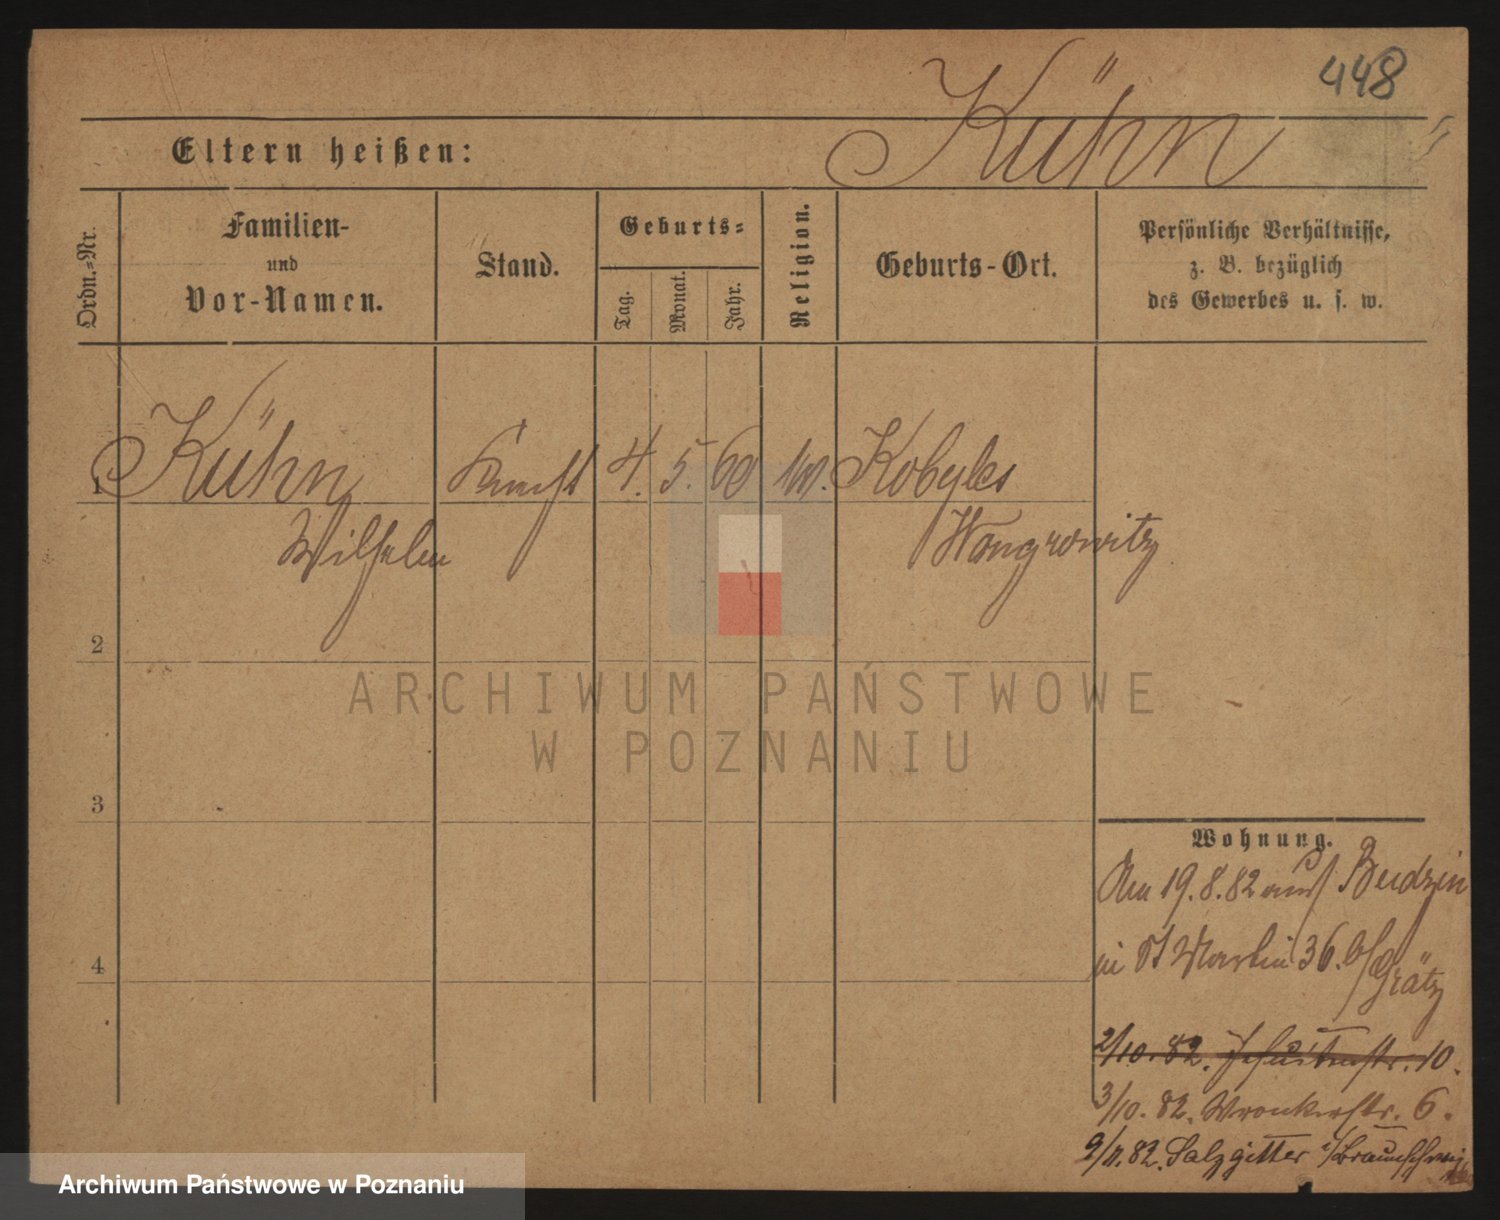 448
Kühn
Eltern heißen:
Ordn.-Nr.
Familien-
und
Vor-Namen.
Stand.
Geburts-
Tag.
Monat.
Jahr.
Religion.
Geburts-Ort.
Persönliche Verhältnisse,
z. B. bezüglich
des Gewerbes u. s. w.
1 Kühn Knecht 4. 5. 60 Kobyles
Wilhelm Wongrowitz
2
3
4
ARCHIWUM PAŃSTWOWE
W POZNANIU
Wohnung.
Am 19.8.82 aus Budzin
in St Martin 36. b/
Grätz
2/10. 82. Jesuitenstr. 10.
3/10. 82. Wronkerstr. 6.
9/11. 82. Salzgitter i/Braunschweig
Archiwum Państwowe w Poznaniu